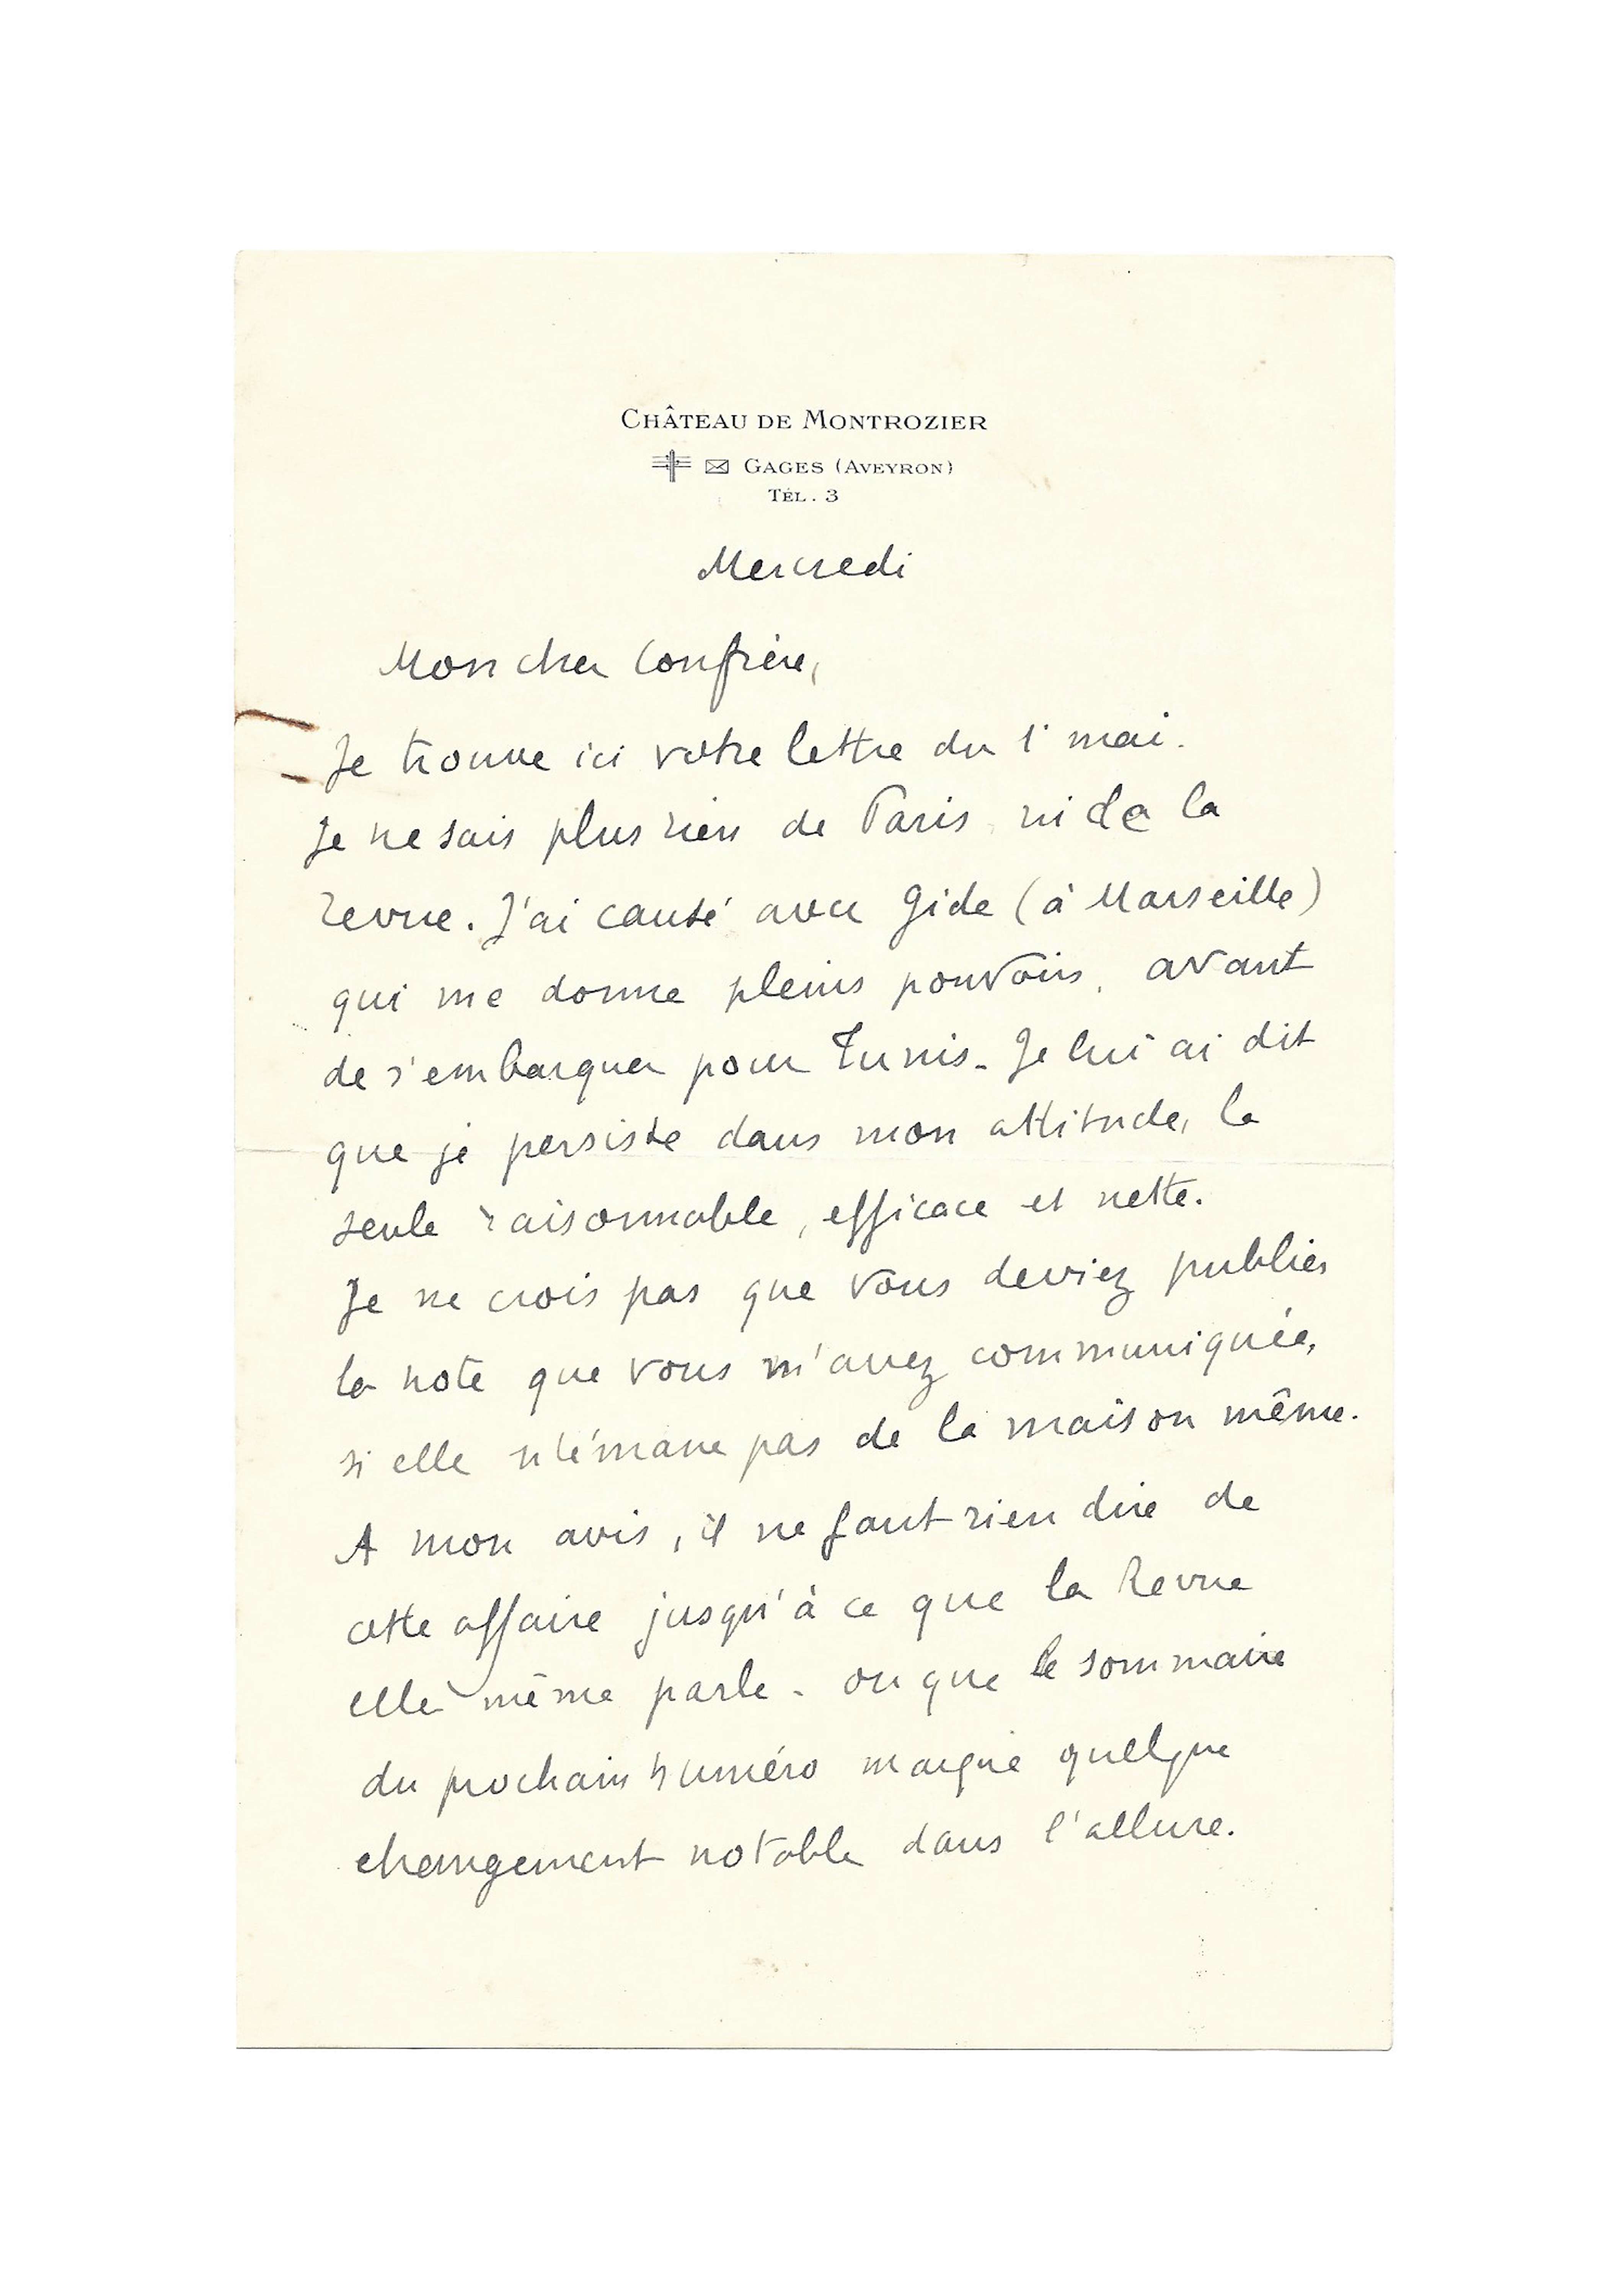 CHÂTEAU DE MONTROZIER
GAGES (AVEYRON)
TÉL. 3
Mercredi
Mon cher Confrère,
Je trouve ici votre lettre du 1r mai.
Je ne sais plus rien de Paris ni de la
revue. J'ai causé avec Gide (à Marseille)
qui me donne pleins pouvoirs, avant
de s'embarquer pour Tunis. Je lui ai dit
que je persiste dans mon attitude, la
seule raisonnable, efficace et nette.
Je ne crois pas que vous deviez publier
la note que vous m'avez communiquée,
si elle n'émane pas de la maison même.
A mon avis, il ne faut rien dire de
cette affaire jusqu'à ce que la Revue
elle même parle - ou que le sommaire
du prochain numéro marque quelque
changement notable dans l'allure.